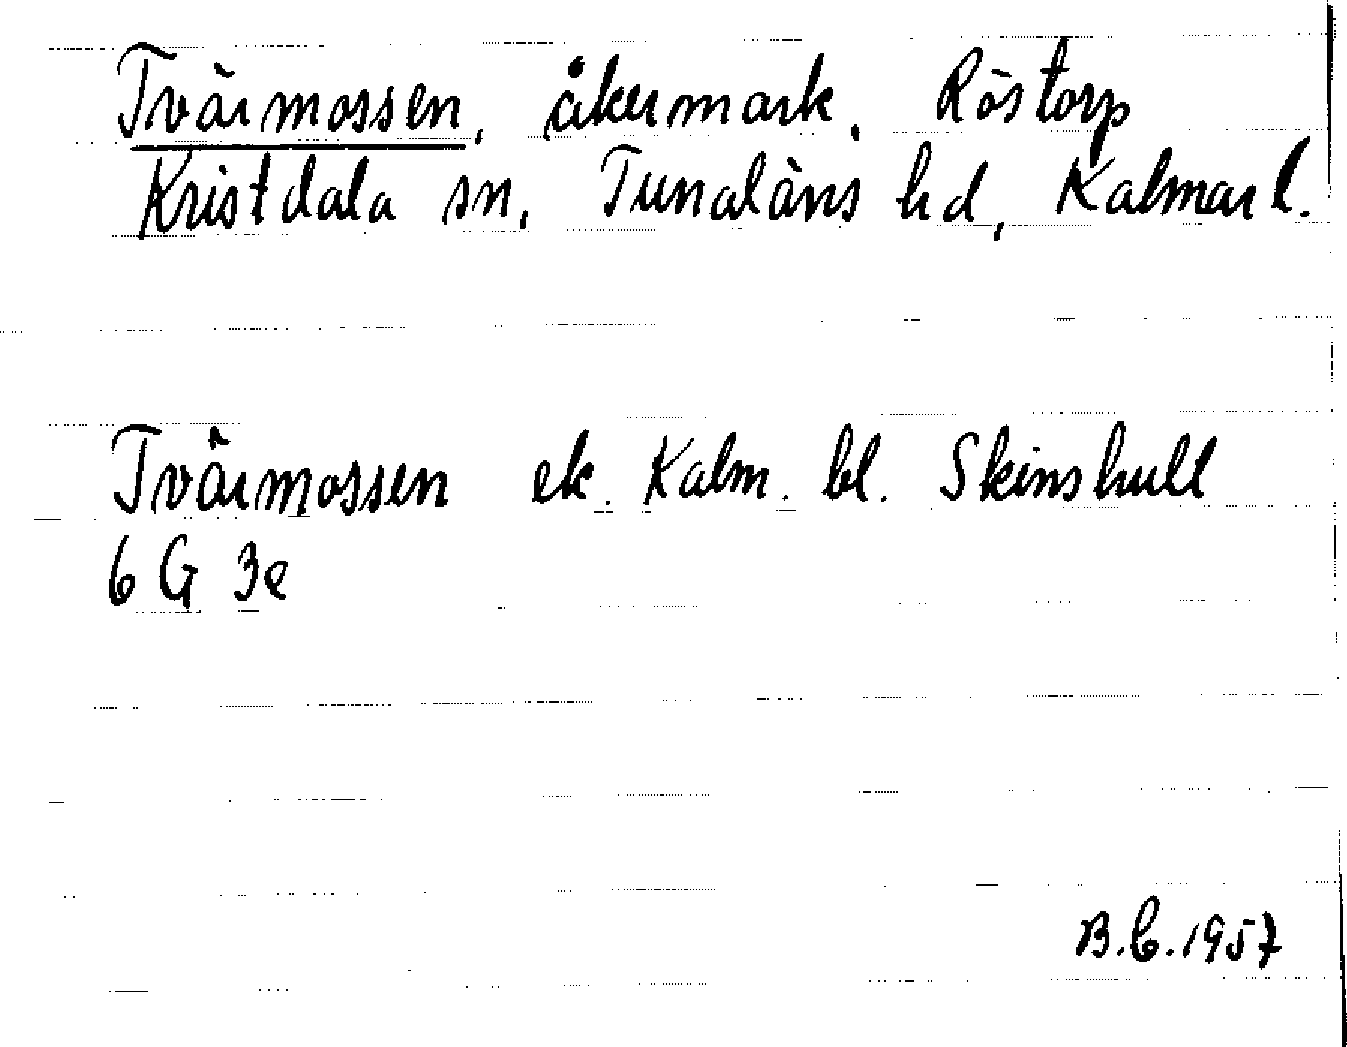 Tvärmossen, åkermark, Röstorp
Kristdala sn, Tunaläns hd, Kalmar l.
Tvärmossen ek. Kalm. bl. Skinshull
6 G 3e
B.C.1957